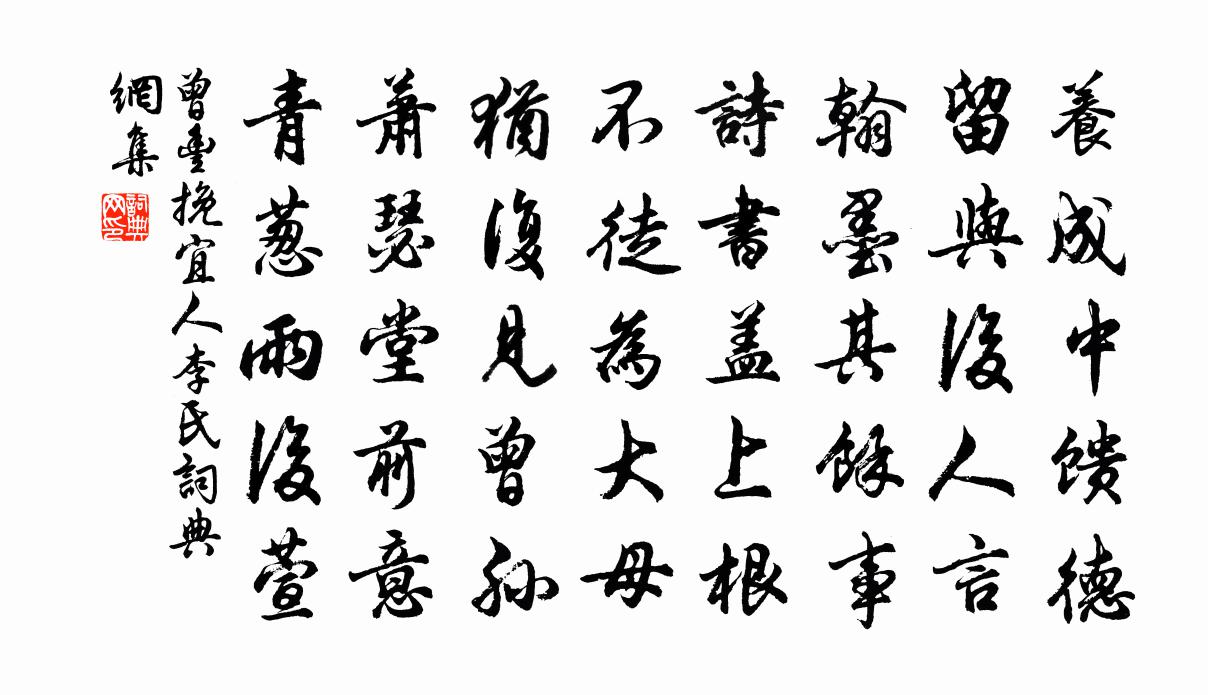 養成中馈德
留與後人言
翰墨其餘事
詩書盖上根
不徒為大母
猶復見曾孫
蕭瑟堂前意
青葱雨後萱
曾豊挽宜人李氏詞典
網集
詞典
网印